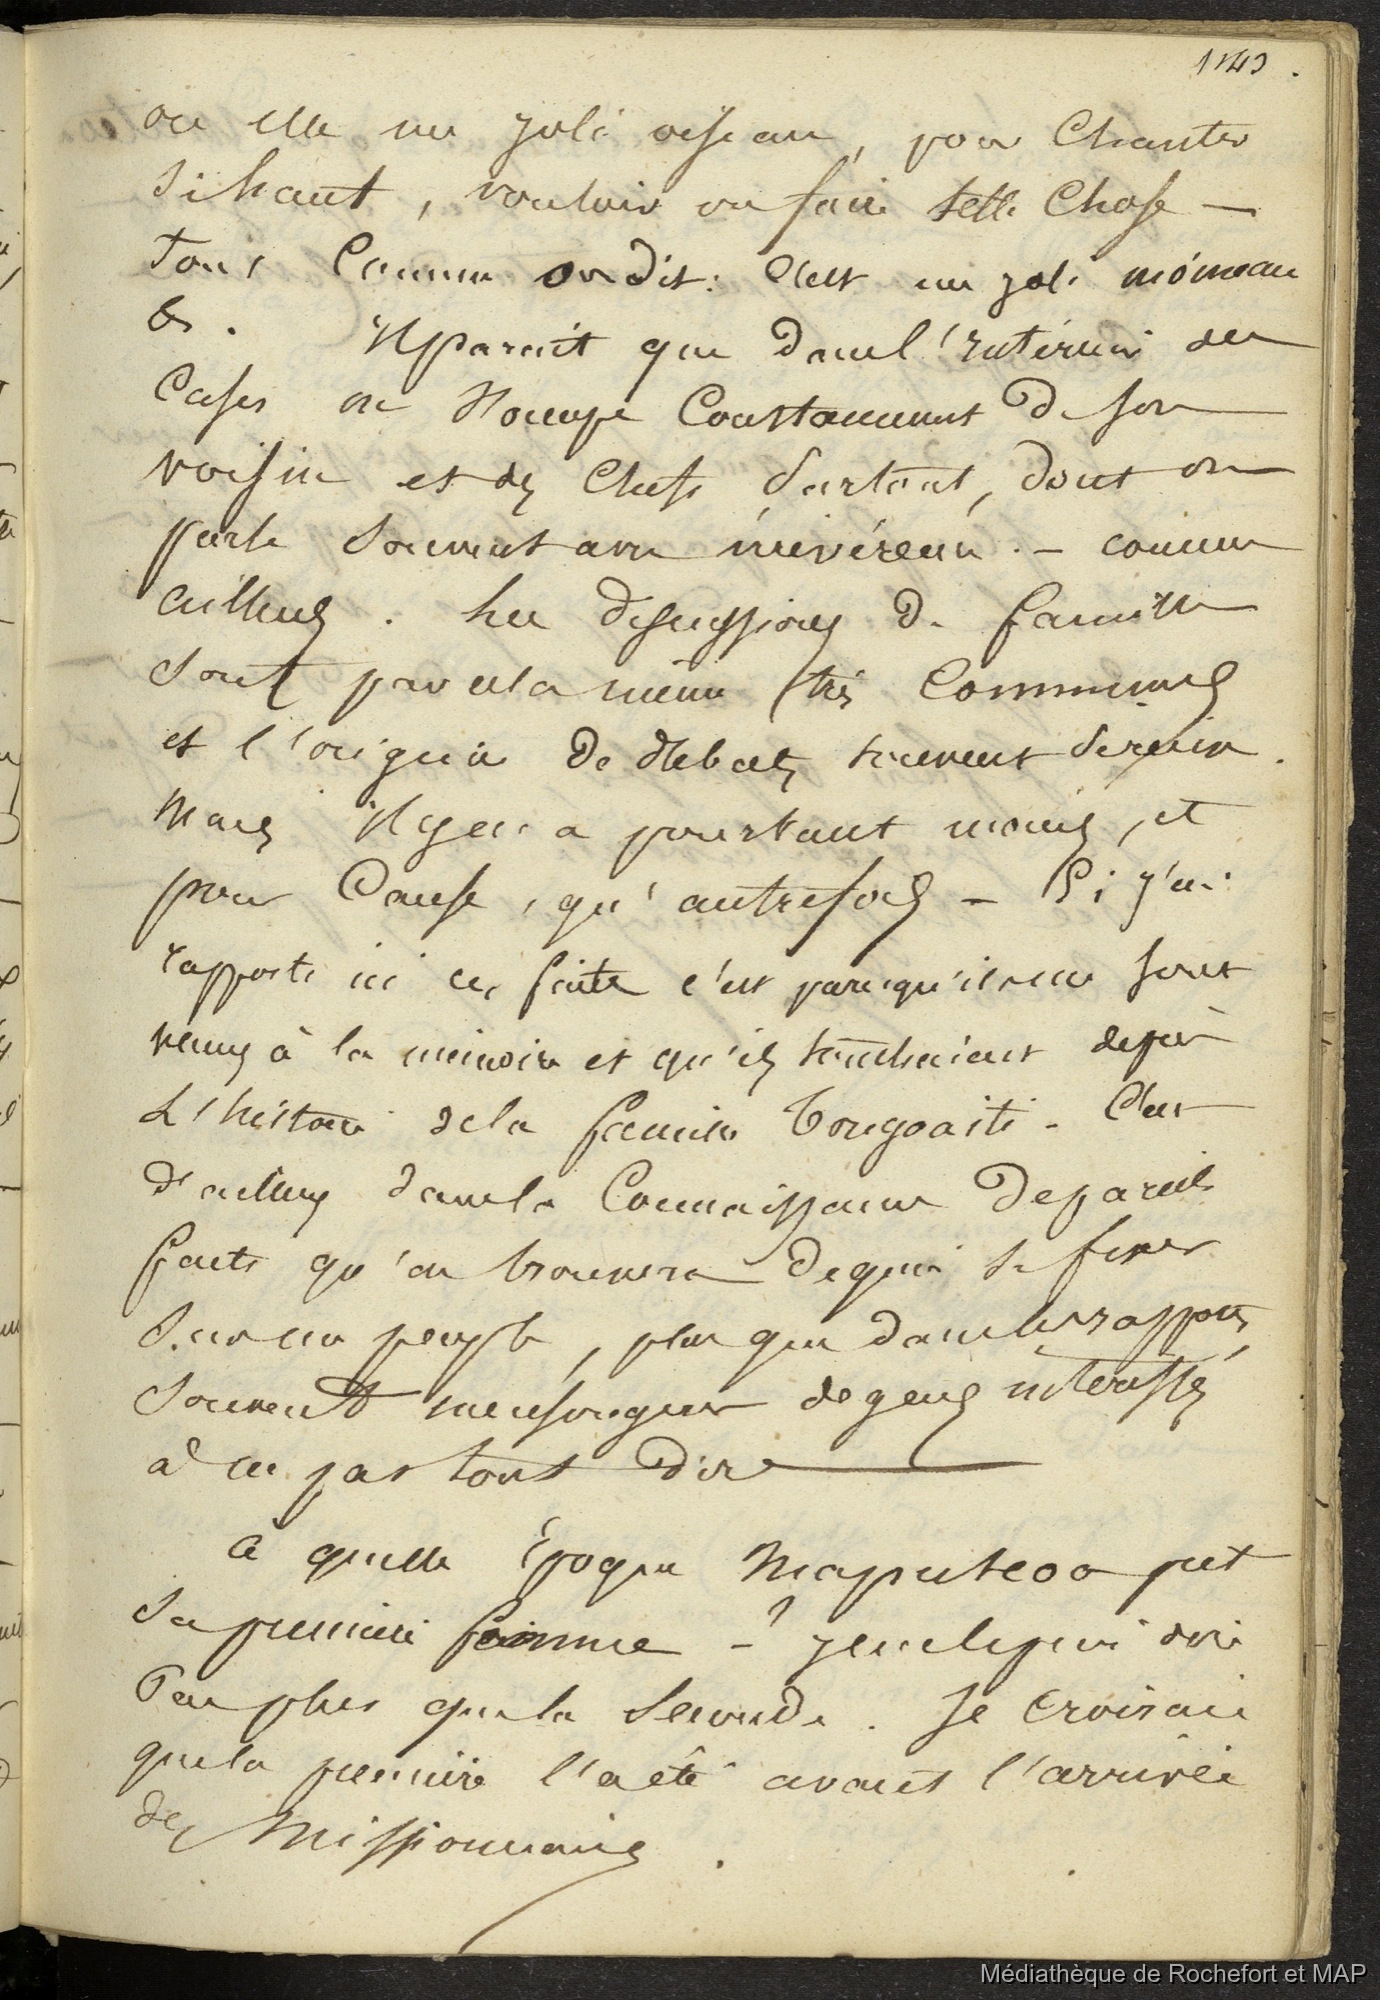 1143.
ou elle un joli oiseau, pour Chanter
si haut, vouloir ou faire telle Chose —
Tous Comme on dit: C'est un joli moineau
&c. Il parait que dans l'intérieur des
Cases on s'occupe Constamment de son
voisin et des Chefs surtout, dont on
parle souvent avec irrévérence. — comme
ailleurs. Les discussions de famille
sont par cela même très Communes
et l'origine de débats souvent sérieux.
Mais il y en a pourtant moins, et
pour Cause, qu'autrefois — Si j'ai
rapporté ici ces faits c'est parcequ'ils me sont
venus à la mémoire et qu'ils touchaient de près
L'histoire de la famille Tongoaiti. C'est
d'ailleurs dans la Connaissance de pareils
faits qu'on trouvera de quoi se fixer
sur un peuple, plus que dans les rapports
souvent mensongers de gens intéressés
à ne pas tout dire
à quelle époque Maputeoa prit
sa première femme — ? je ne le puis dire
Pas plus que la seconde. Je croirais
que la première l'a été avant l'arrivée
des Missionnaires.
Médiathèque de Rochefort et MAP